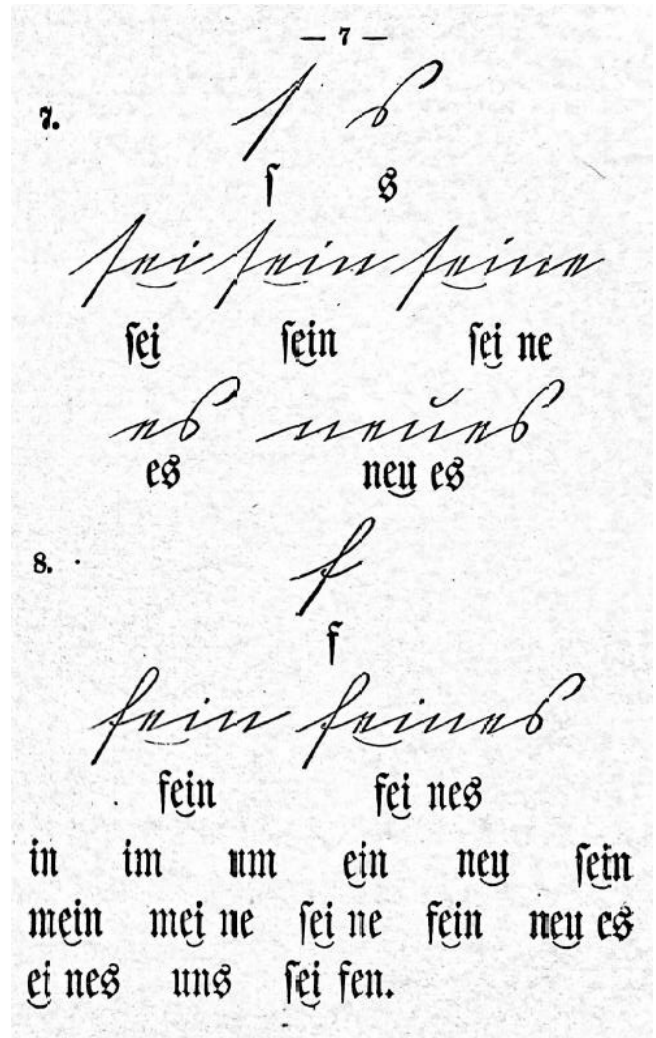 — 7 —
7. ſ s
ſ s
ſei ſein ſeine
ſei ſein ſei ne
es neues
es neu es
8. f
f
fein feines
fein fei nes
in im um ein neu ſein
mein mei ne ſei ne fein neu es
ei nes uns ſei fen.